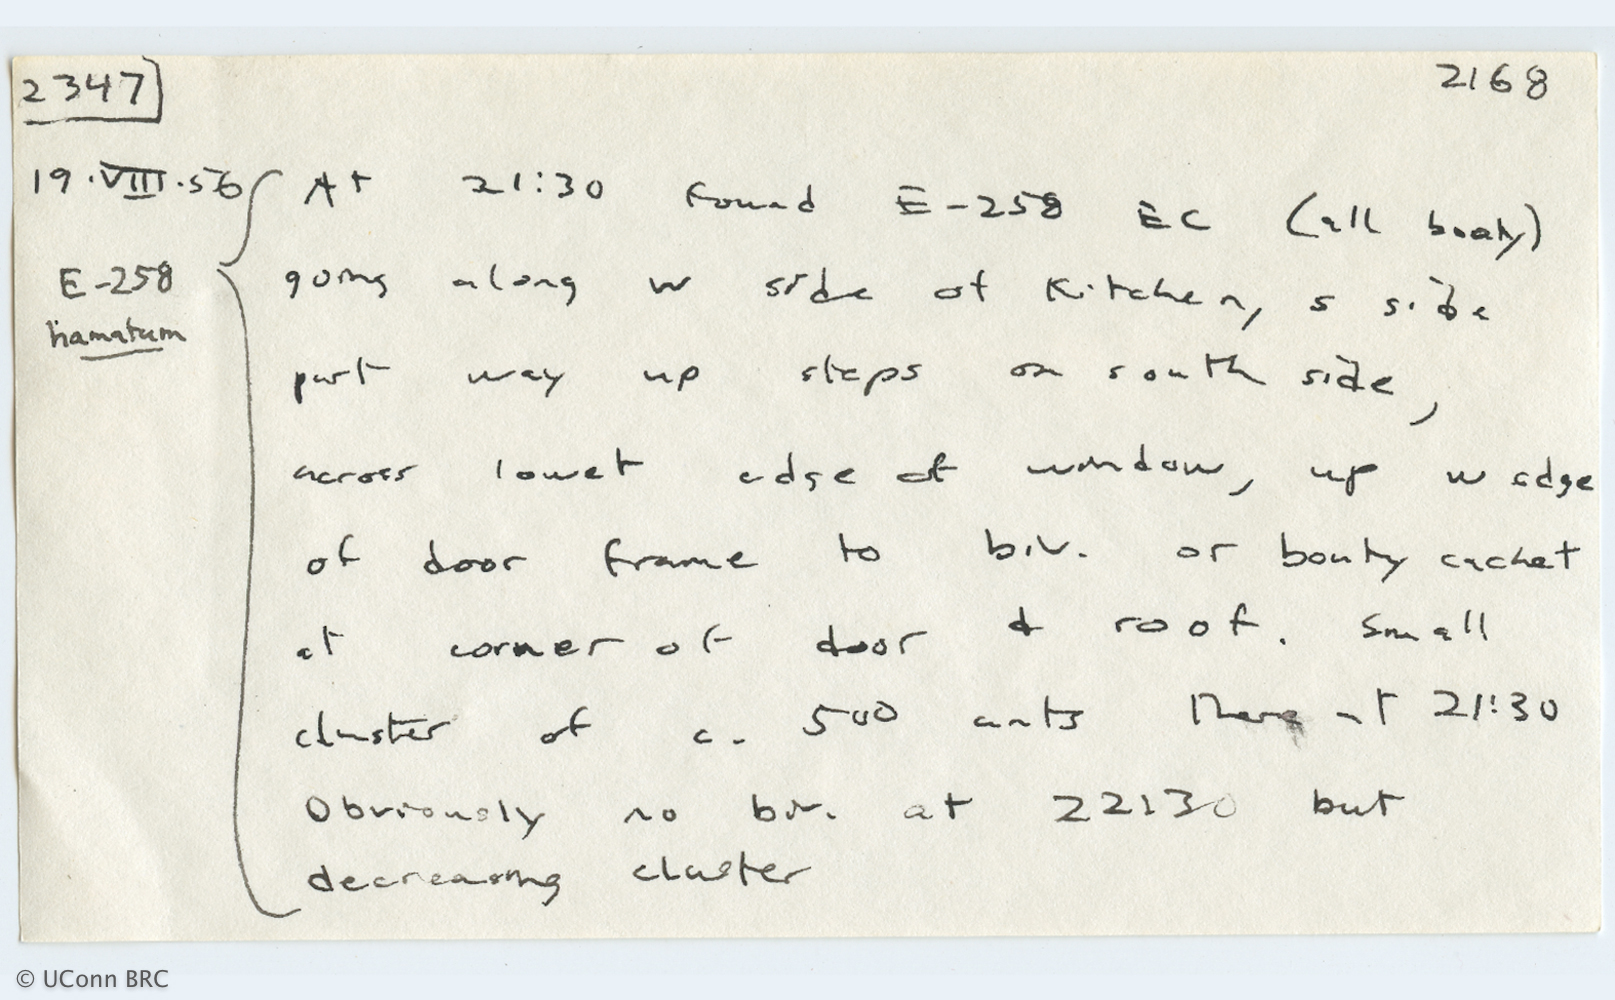 2347 2168
19.VIII.56 At 21:30 found E-258 EC (all booty)
E-258 going along W side of Kitchen, S side
hamatum
part way up steps on south side,
across lower edge of window, up W edge
of door frame to biv. or booty cachet
at corner of door & roof. Small
cluster of c. 500 ants there at 21:30
Obviously no biv. at 22:30 but
decreasing cluster
© UConn BRC